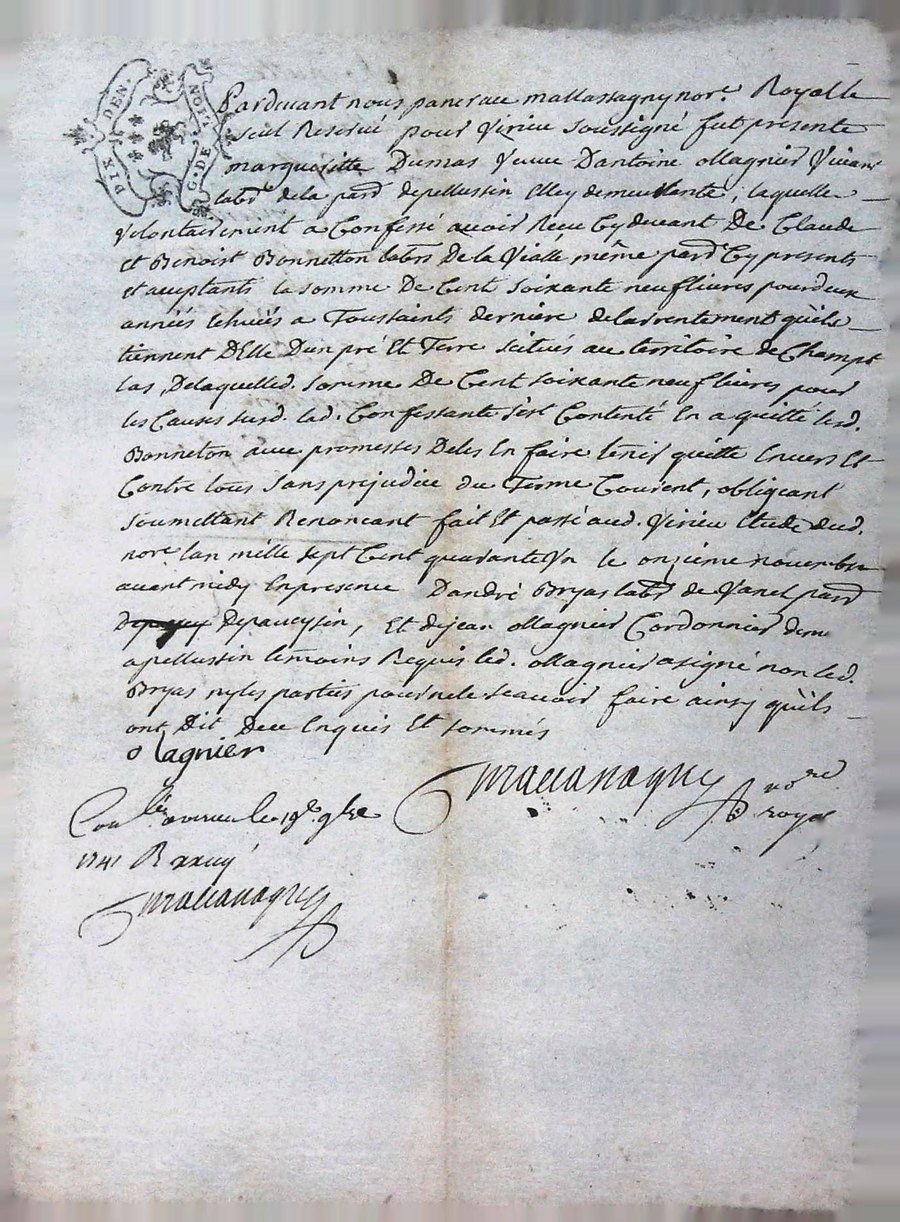 DIX DEN. G. DE NOI.
Pardevant nous pancrace mallassagny nore. Royalle
seul Reservé pour Virieu soussigné fut presente
margueritte Dumas Veuve Dantoine Ollagnier Vivant
labr. de la parr. de pellussin Elley demeurante, laquelle
Volontairement a Confessé avoir Receu Cy devant De Claude
et Benoist Bonnetton labrs De la Vialle même parr. Cy presents
et acceptants la somme De Cent soixante neuf livres pour deux
annéés echuës a Toussaints derniere delarrentement qu'ils
tiennent D'Elle D'un pré Et Terre scitués au territoire de Champt
las, De laquelle d. somme De Cent soixante neuf livres pour
les Causes surd. lad. Confessante s'est Contenté En a quitté lesd.
Bonneton avec promesses De les En faire tenir quitte Envers Et
Contre tous sans prejudice du Terme Courent, obligeant
soumettant Renoncant fait Et passé aud. Virieu Etude dud.
nore lan mille sept Cent quarante Un le onzieme novembre
avant midy En presence D'andré Bryas labr. de Vanel parr.
Depaucysin, Et dejean Ollagnier Cordonnier deme
a pellussin temoins Requis led. Ollagnier a signé non led.
Bryas ny les parties pour ne le sçeavoir faire ainsy qu'ils
ont Dit De ce Enquis Et sommés
Olagnier
nore
royal
Conllé a virieu le 19e 9bre
1741 R